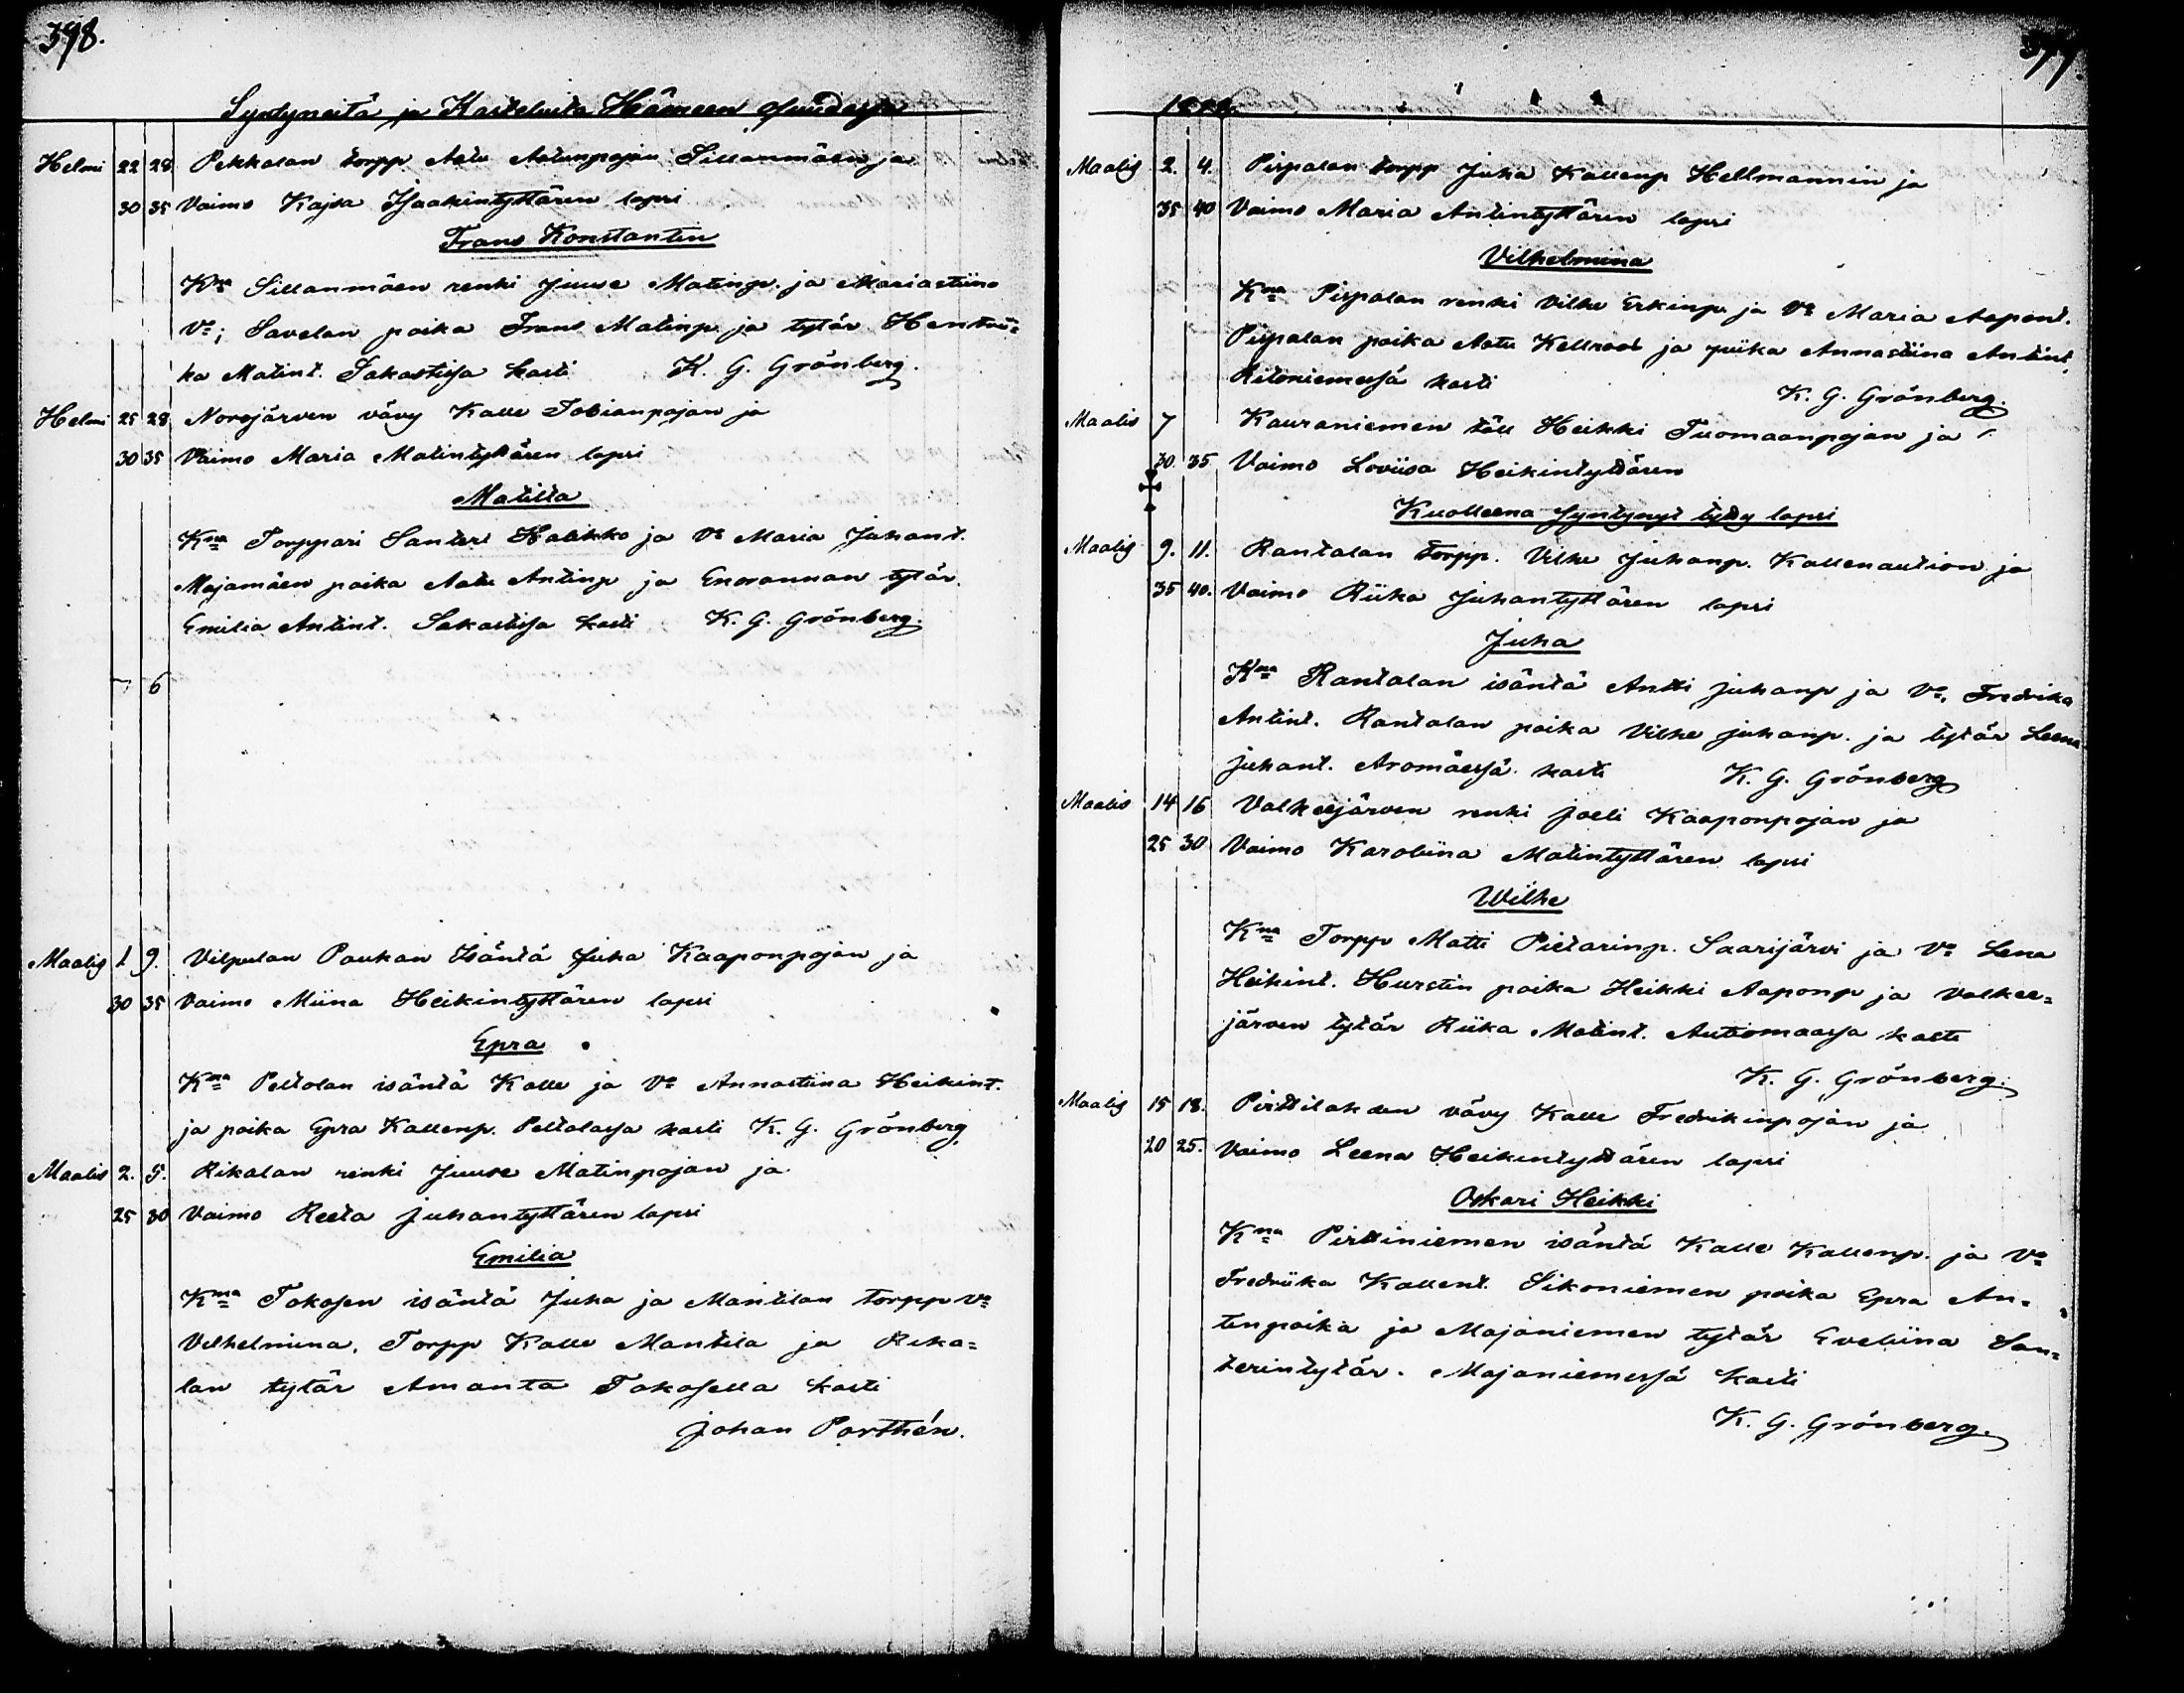 398.
Syntyneitä ja Kasteluita Hämeen
Helmi 22 28 Pekkalan torpp. Aatu Aatunpojan Sillanmäen ja
30 35 Vaimo Kajsa Isaakintyttären lapsi
Frans Konstantin
Kna Sillanmäen renki Juuse Matinp. ja Mariastiina
Vo; Savelan poika Frans Matinp. ja tytär Hentrii=
ka Matint. Sakastissa kasti K. G. Grönberg.
Helmi 25 28 Norojärven vävy Kalle Tobianpojan ja
30 35 Vaimo Maria Matintyttären lapsi
Matilta
Kna Torppari Santeri Halikko ja Vo Maria Juhant.
Majamäen poika Aatu Antinp ja Enorannan tytär
Emilia Antint. Sakastissa kasti K. G. Grönberg.
7 6
Maalis 1 9. Vilpulan Paukan Isäntä Juha Kaaponpojan ja
30 35 Vaimo Miina Heikintyttären lapsi
Epra
Kna Peltolan isäntä Kalle ja Vo Annastiina Heikint.
ja poika Epra Kallenp. Peltolassa kasti K. G. Grönberg.
Maalis 2. 5. Rikalan renki Juuse Matinpojan ja
25 30 Vaimo Reeta Juhantyttären lapsi
Emilia
Kna Tokosen isäntä Juha ja Mantilan torpp Vo
Vilhelmina, Torpp Kalle Mantila ja Rika=
lan tytär Amanta Tokosella kasti
Johan Porthén.
Maalis 2. 4. Pirpalan torpp Juha Kallenp Hellmannin ja
35 40 Vaimo Maria Antintyttären lapsi
Vilhelmina
Kna Pirpalan renki Vilhe Erkinp. ja Vo Maria Aapont.
Pirpalan poika Aatu Kellroos ja piika Annastiina Antint.
Ritoniemessä kasti K. G. Grönberg.
Maalis 7 Kauraniemen töll Heikki Tuomaanpojan ja
30. 35 Vaimo Loviisa Heikintyttären
Kuolleena syntynyt tyttö lapsi
Maalis 9. 11. Rantalan Torpp. Vilhe Juhanp. Kallenaution ja
35 40. Vaimo Riika Juhantyttären lapsi
Juha
Kna Rantalan isäntä Antti Juhanp ja Vo, Fredrika
Antint. Rantalan poika Vilhe Juhanp. ja tytär Leena
Juhant. Aromäessä kasti K. G. Grönberg
Maalis 14 16 Valkeejärven renki Joeli Kaaponpojan ja
25 30 Vaimo Karoliina Matintyttären lapsi
Wilhe
Kna Torpp Matti Pietarinp. Saarijärvi ja Vo Lena
Heikint. Hurstin poika Heikki Aaponp ja Valkee=
järven tytär Riika Matint. Autiomaassa kasti
K. G. Grönberg.
Maalis 15 18. Pirttilahden vävy Kalle Fredrikinpojan ja
20 25. Vaimo Leena Heikintyttären lapsi
Oskari Heikki
Kna Pirttiniemen isäntä Kalle Kallenp. ja Vo
Fredriika Kallent. Sikoniemen poika Epra An=
tinpoika ja Majaniemen tytär Eveliina San=
terintytär. Majaniemessä kasti
K. G. Grönberg.